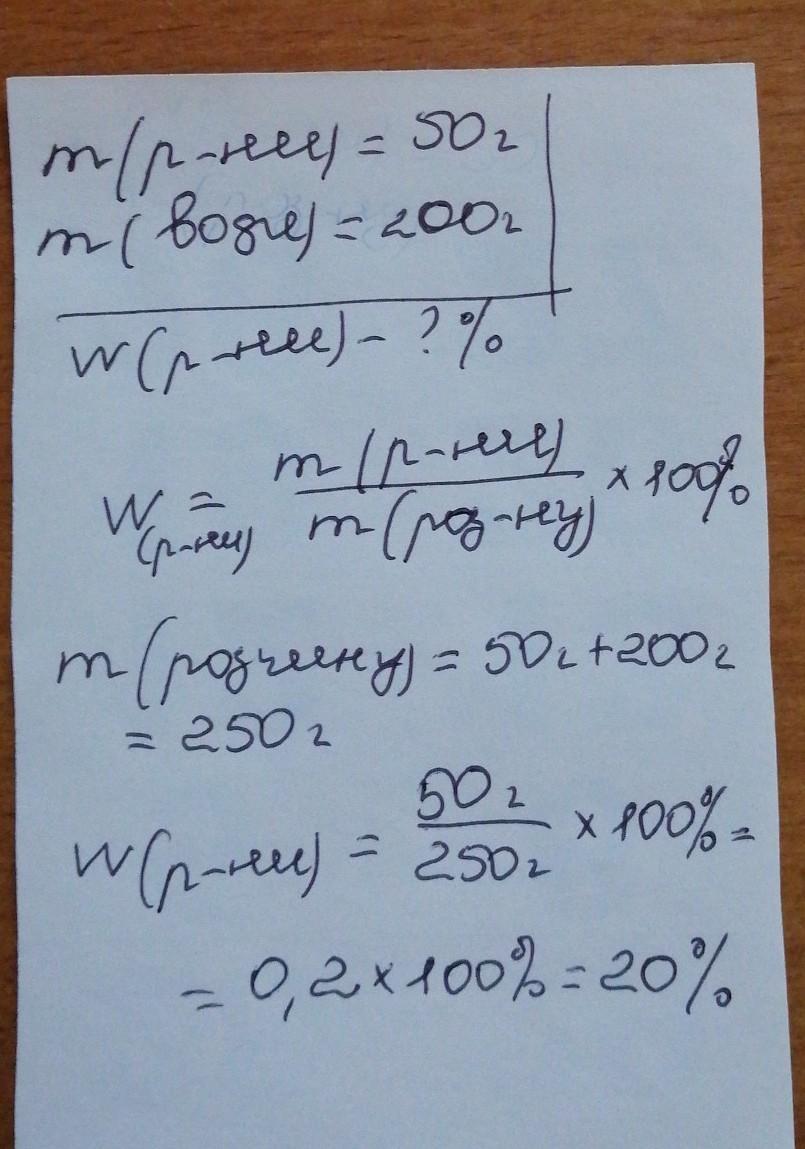 m(р-ни) = 50г
m(води) = 200г
W(р-ни) - ? %
W(р-ни) = m(р-ни) / m(роз-ну) × 100%
m(розчину) = 50г + 200г
= 250г
W(р-ни) = 50г / 250г × 100% =
= 0,2 × 100% = 20%